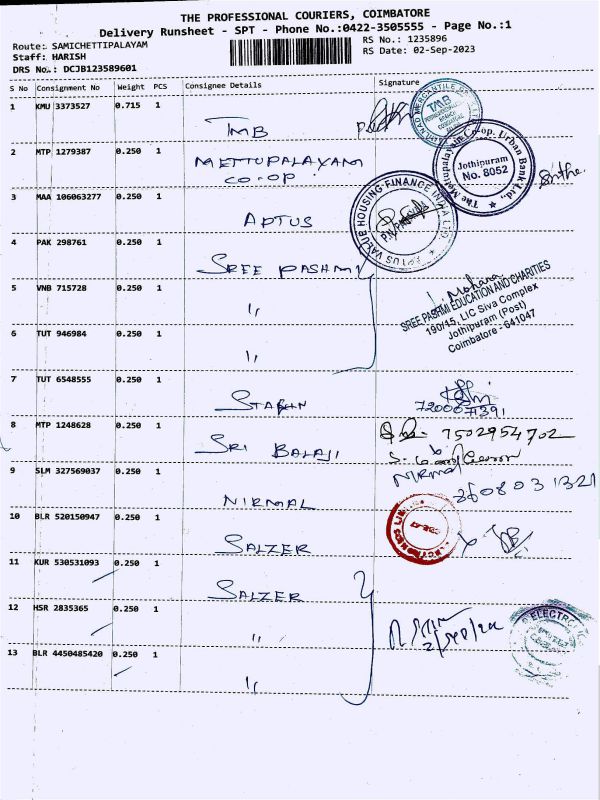 THE PROFESSIONAL COURIERS, COIMBATORE
Delivery Runsheet - SPT - Phone No.:0422-3505555 - Page No.:1
Route: SAMICHETTIPALAYAM
RS No.: 1235896
Staff: HARISH
RS Date: 02-Sep-2023
DRS No.: DCJB123589601
S No Consignment No Weight PCS Consignee Details Signature
1 KMU 3373527 0.715 1
TMB
TMB
2 MTP 1279387 0.250 1
METTUPALAYAM
CO-OP
The Mettupalayam Co-op. Urban Bank Ltd.,
Jothipuram
No. 8052
3 MAA 106063277 0.250 1
APTUS
APTUS VALUE HOUSING FINANCE INDIA LTD
4 PAK 298761 0.250 1
SREE PASHMI
5 VNB 715728 0.250 1
"
Mohana
SREE PASHMI EDUCATION AND CHARITIES
190/15, LIC Siva Complex
Jothipuram (Post)
Coimbatore - 641047
6 TUT 946984 0.250 1
"
7 TUT 6548555 0.250 1
7200071391
8 MTP 1248628 0.250 1
SRI BALAJI
7502954702
9 SLM 327569037 0.250 1
NIRMAL
Nirmal
10 BLR 520150947 0.250 1
SALZER
11 KUR 530531093 0.250 1
SALZER
12 HSR 2835365 0.250 1
"
13 BLR 4450485420 0.250 1
"